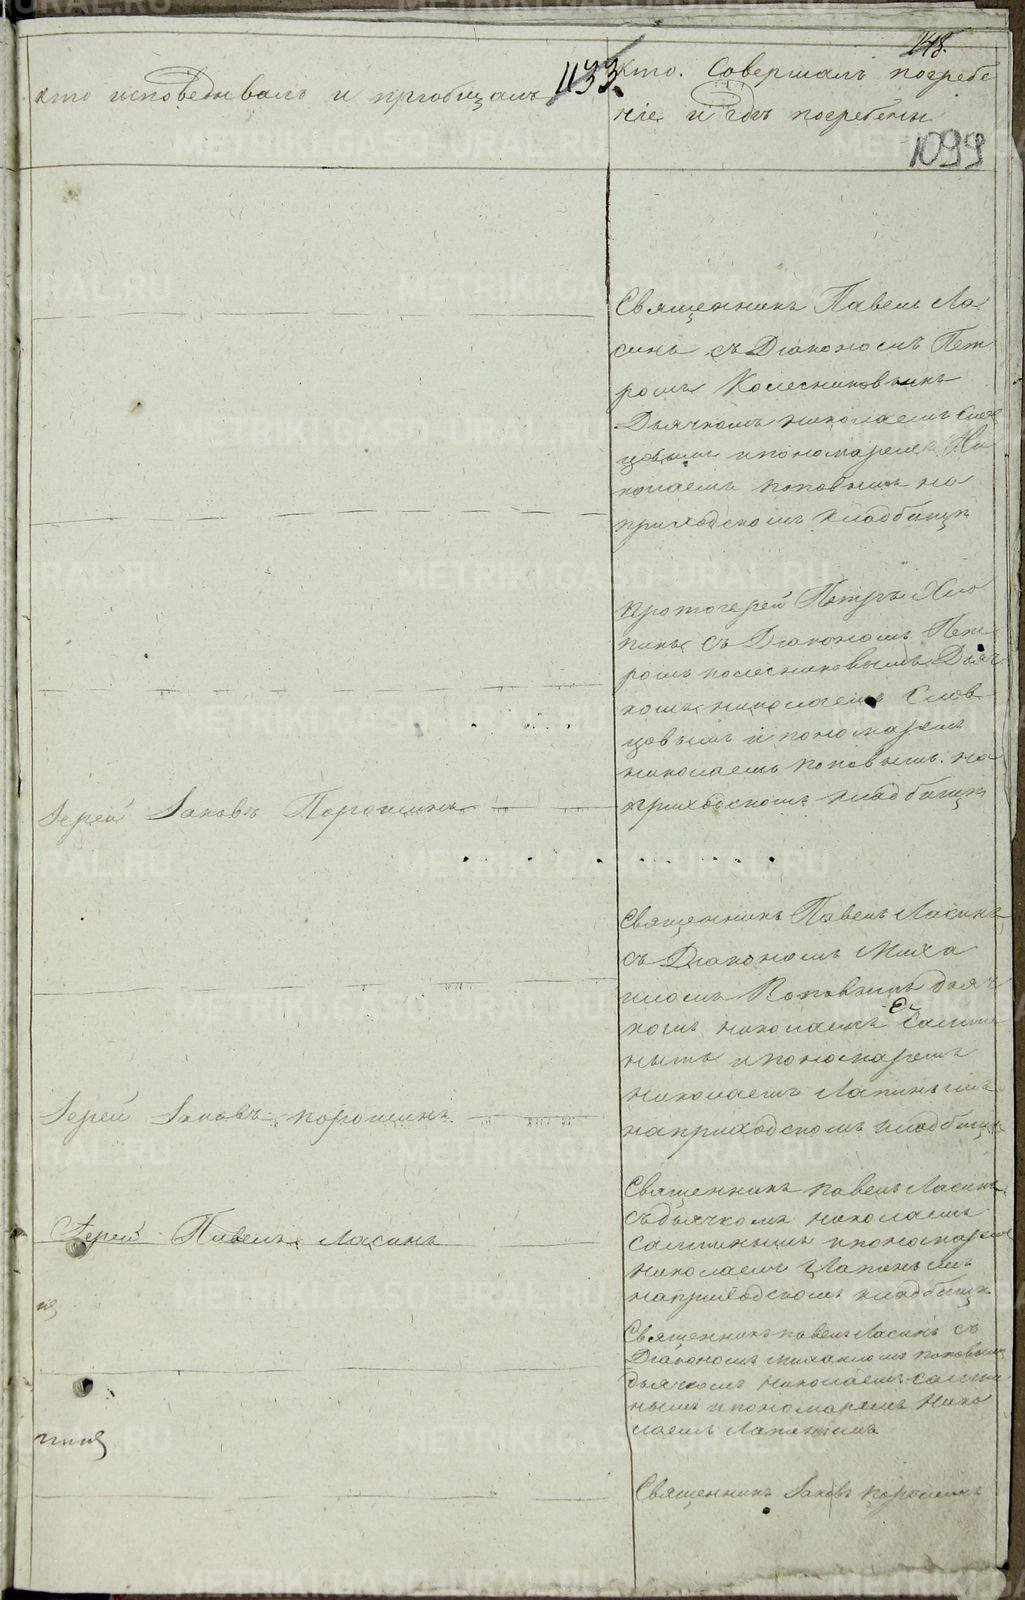 148.
1133.
1099
кто исповедывалъ и прiобщалъ
кто. Совершалъ погребе
нiе и гдѣ погребены
Священникъ Павелъ Ла
синъ съ Дiакономъ Пет
ромъ Колесниковымъ
Дьячкомъ николаемъ Слов
цовымъ и пономаремъ Ни
колаемъ поповымъ на
приходскомъ кладбищѣ
протоiерей Петръ Хло
пинъ съ Дiакономъ Пет
ромъ колесниковымъ Дьяч
комъ николаемъ Слов
цовымъ и пономаремъ
николаемъ поповымъ. на
приходскомъ кладбищѣ
Iерей Iаковъ Порошинъ
Священникъ Павелъ Ласинъ
съ Дiакономъ Миха
иломъ Поповымъ дьяч
комъ николаемъ
нымъ и пономаремъ
николаемъ Лапинымъ
на приходскомъ кладбищѣ
Iерей Iаковъ порошинъ
Священникъ павелъ Ласинъ
съ дьячкомъ николаемъ
и пономаремъ
николаемъ Лапинымъ
на приходскомъ кладбищѣ
Iерей Павелъ Ласинъ
Священникъ павелъ Ласинъ съ
Дiакономъ михаиломъ поповымъ
дьячкомъ николаемъ
нымъ и пономаремъ Нико
лаемъ Лапинымъ
Священникъ Iаковъ порошинъ
METRIKI.GASO-URAL.RU